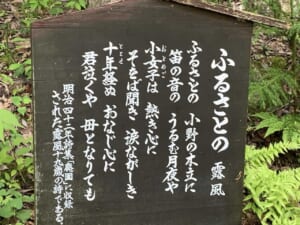 ふるさとの
露風
ふるさとの 小野の木立に
笛の音の うるむ月夜や
小女子は 熱き心に
おとめご
そをば聞き 涙ながしき
十年経ぬ おなじ心に
ととせ
君泣くや 母となりても
明治四十一年詩集「廃園」に収録
された露風十九歳の詩である。